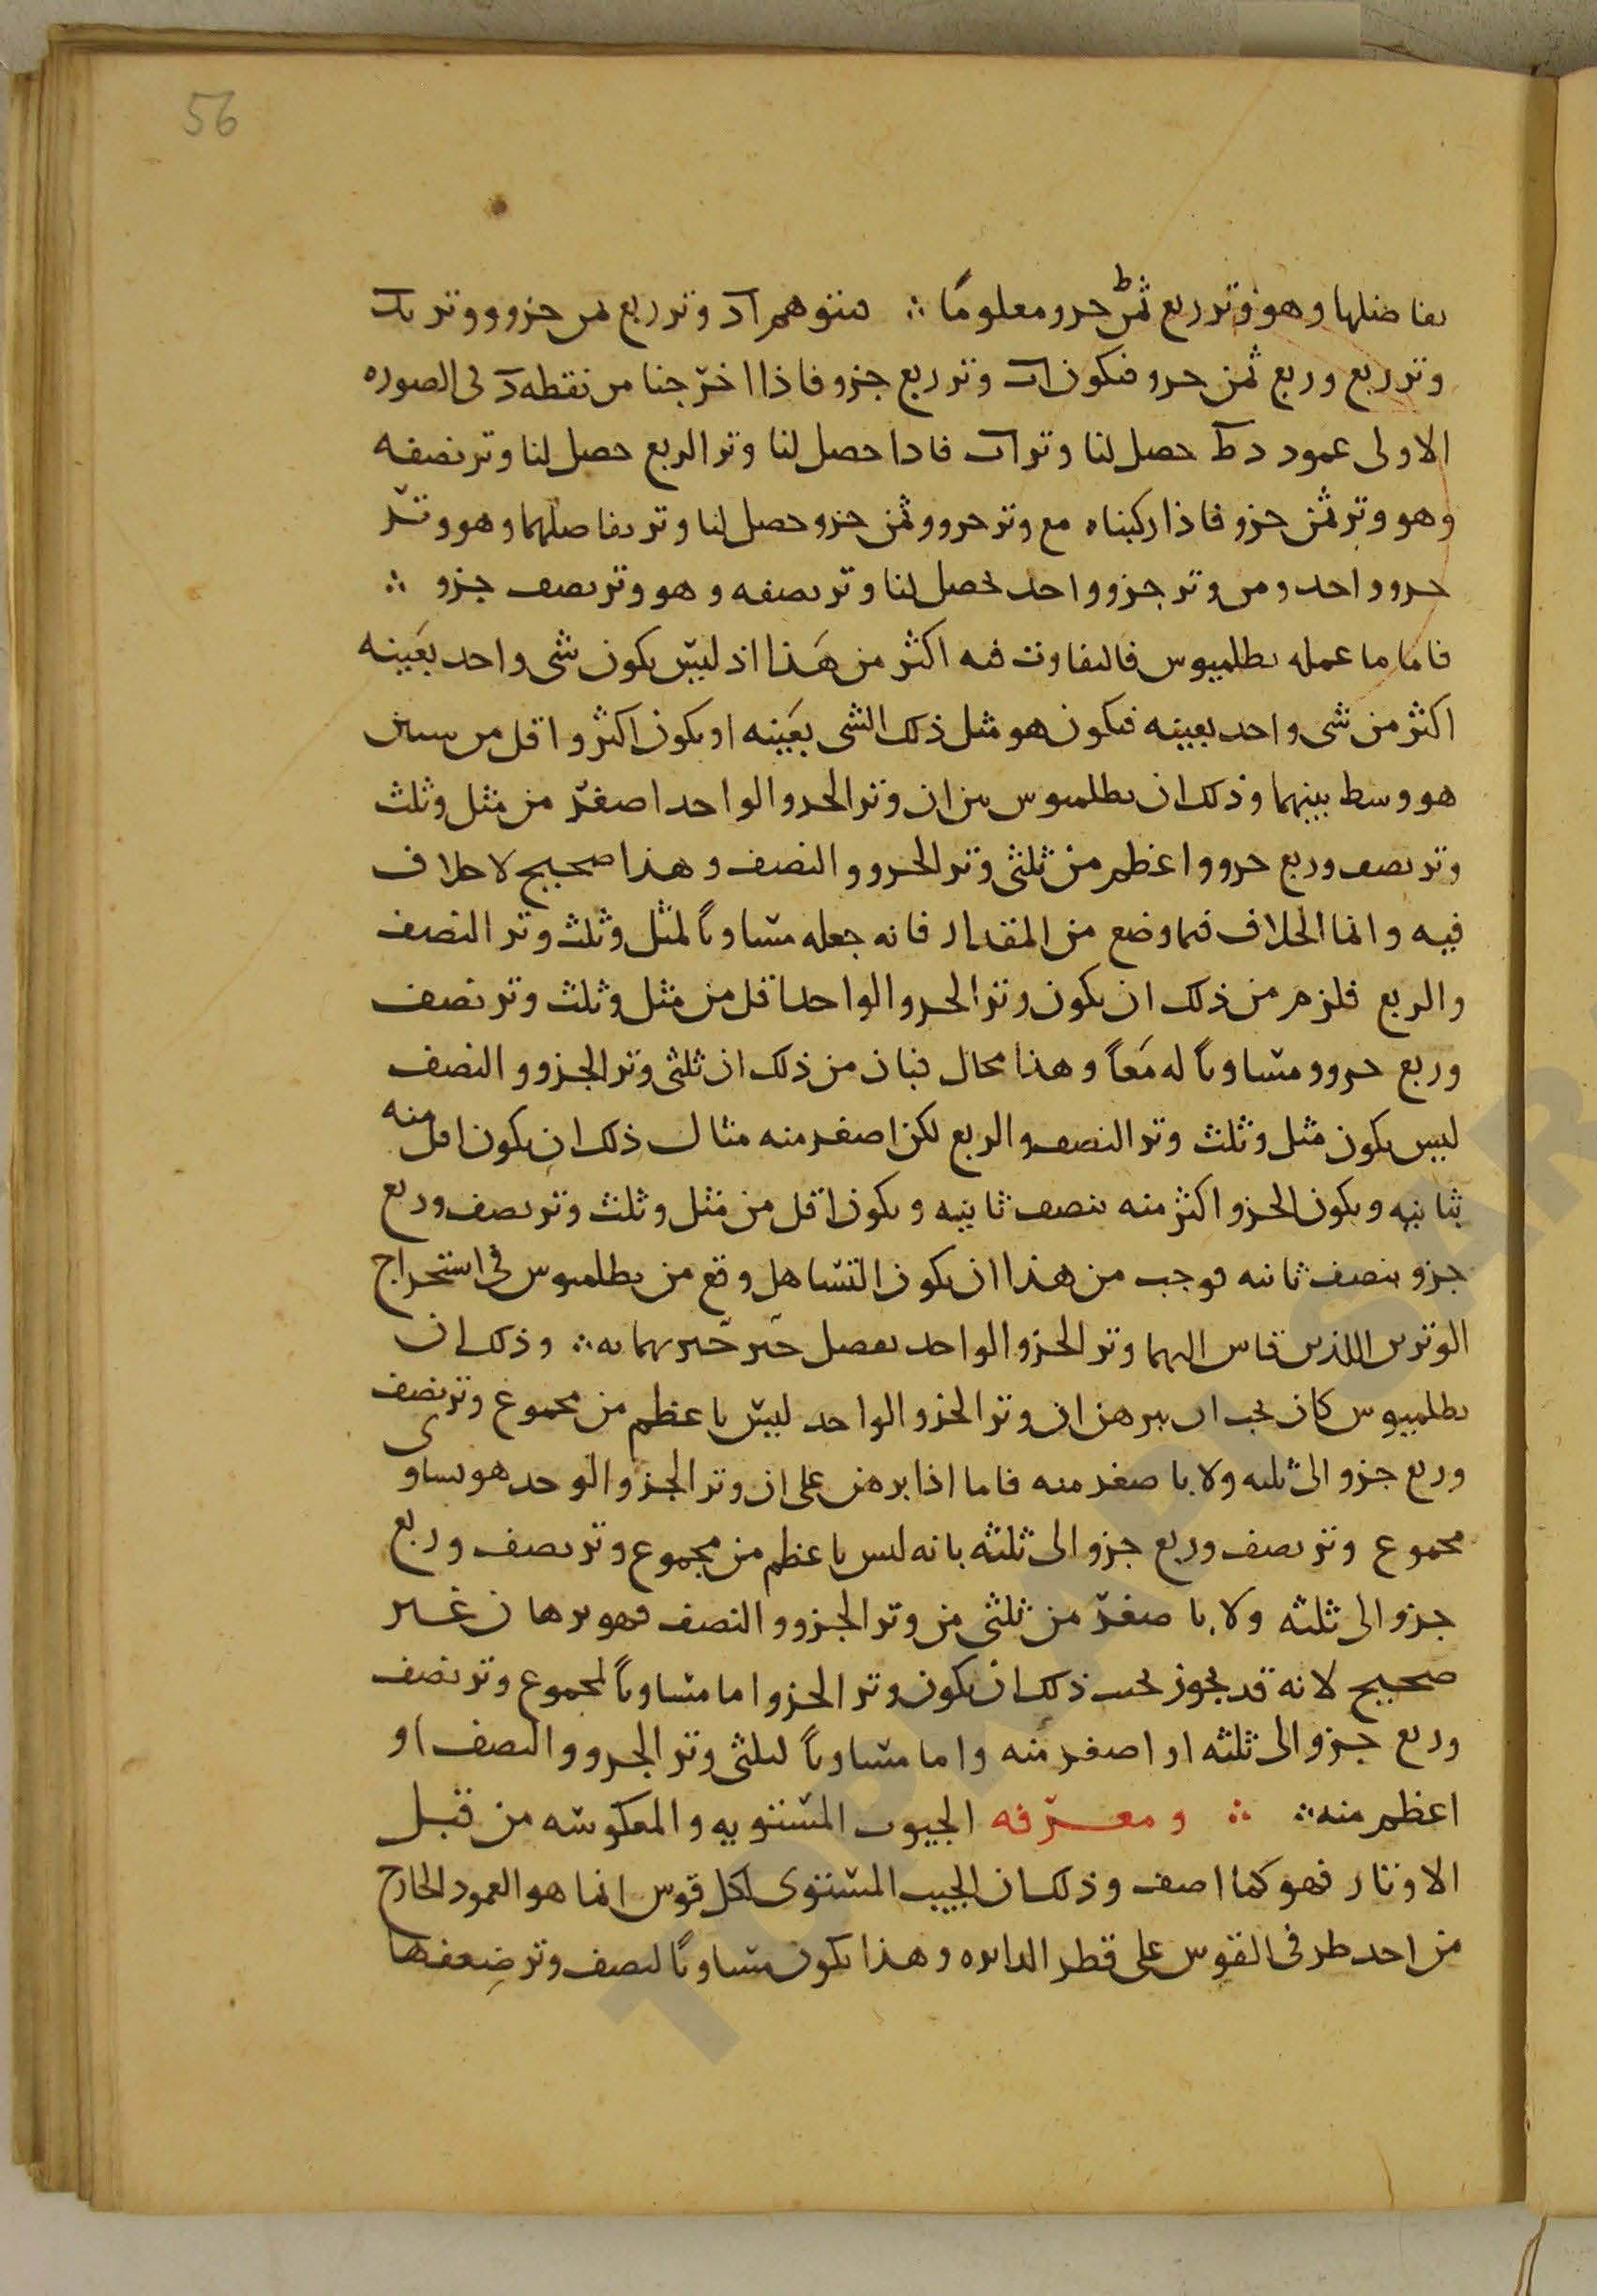 56
تفاضلها وهو وتر ربع ثمن جزو معلومًا ∴ فنتوهم اد وتر ربع ثمن جزو ووتر دب
وتر ربع وربع ثمن جزو فيكون اب وتر ربع جزو فاذا اخرجنا من نقطه د فى الصوره
الاولى عمود دط حصل لنا وتر اب فاذا حصل لنا وتر الربع حصل لنا وتر نصفه
وهو وتر ثمن جزو فاذا ركبناه مع وتر جزو وثمن جزو حصل لنا وتر تفاضلهما وهو وتر
جزو واحد ومن وتر جزو واحد يحصل لنا وتر نصفه وهو وتر نصف جزو ∴
فاما ما عمله بطلميوس فالتفاوت فيه اكثر من هَذا اذ ليس يكون شى واحد بعَينه
اكثر من شى واحد بعينه فيكون هو مثل ذلك الشى بعَينه او يكون اكثر واقل من سين
هو وسط بينهما وذلك ان بطلميوس بين ان وتر الجزو الواحد اصغر من مثل وثلث
وتر نصف وربع جزو واعظم من ثلثى وتر الجزو والنصف وهذا صحيح لا خلاف
فيه وانما الخلاف فيما وضع من المقدار فانه جعله مساوياً لمثل وثلث وتر النصف
والربع فلزم من ذلك ان يكون وتر الجزو الواحد اقل من مثل وثلث وتر نصف
وربع جزو ومساوياً له مَعاً وهذا محال فبان من ذلك ان ثلثى وتر الجزو والنصف
ليس يكون مثل وثلث وتر النصف والربع لكن اصغر منه مثال ذلك ان يكون اقل منه
بثانيه ويكون الجزو اكثر منه بنصف ثانيه ويكون اقل من مثل وثلث وتر نصف وربع
جزو بنصف ثانيه فوجب من هذا ان يكون التساهل وقع من بطلميوس فى استخراج
الوترين اللذين قاس اليهما وتر الجزو الواحد بفصل حير حير بهما به ∴ وذلك ان
بطلميوس كان يجب ان يبرهن ان وتر الجزو الواحد ليس باعظم من مجموع وتر نصف
وربع جزو الى ثلثه ولا باصغر منه فاما اذا برهن على ان وتر الجزو الوحد هو يساوى
مجموع وتر نصف وربع جزو الى ثلثه بانه ليس باعظم من مجموع وتر نصف وربع
جزو الى ثلثه ولا باصغر من ثلثى من وتر الجزو والنصف فهو برهان غير
صحيح لانه قد يجوز بحسب ذلك ان يكون وتر الجزو اما مساوياً لمجموع وتر نصف
وربع جزو الى ثلثه او اصغر منه واما مساوياً لثلثى وتر الجزو والنصف او
اعظم منه ∴ ∴ ومعرفه الجيوب المستويه والمعكوسه من قبل
الاوتار فهو كما اصف وذلك ان الجيب المستوى لكل قوس انما هو العمود الخارج
من احد طرفى القوس على قطر الدايره وهذا يكون مساوياً لنصف وتر ضِعفها